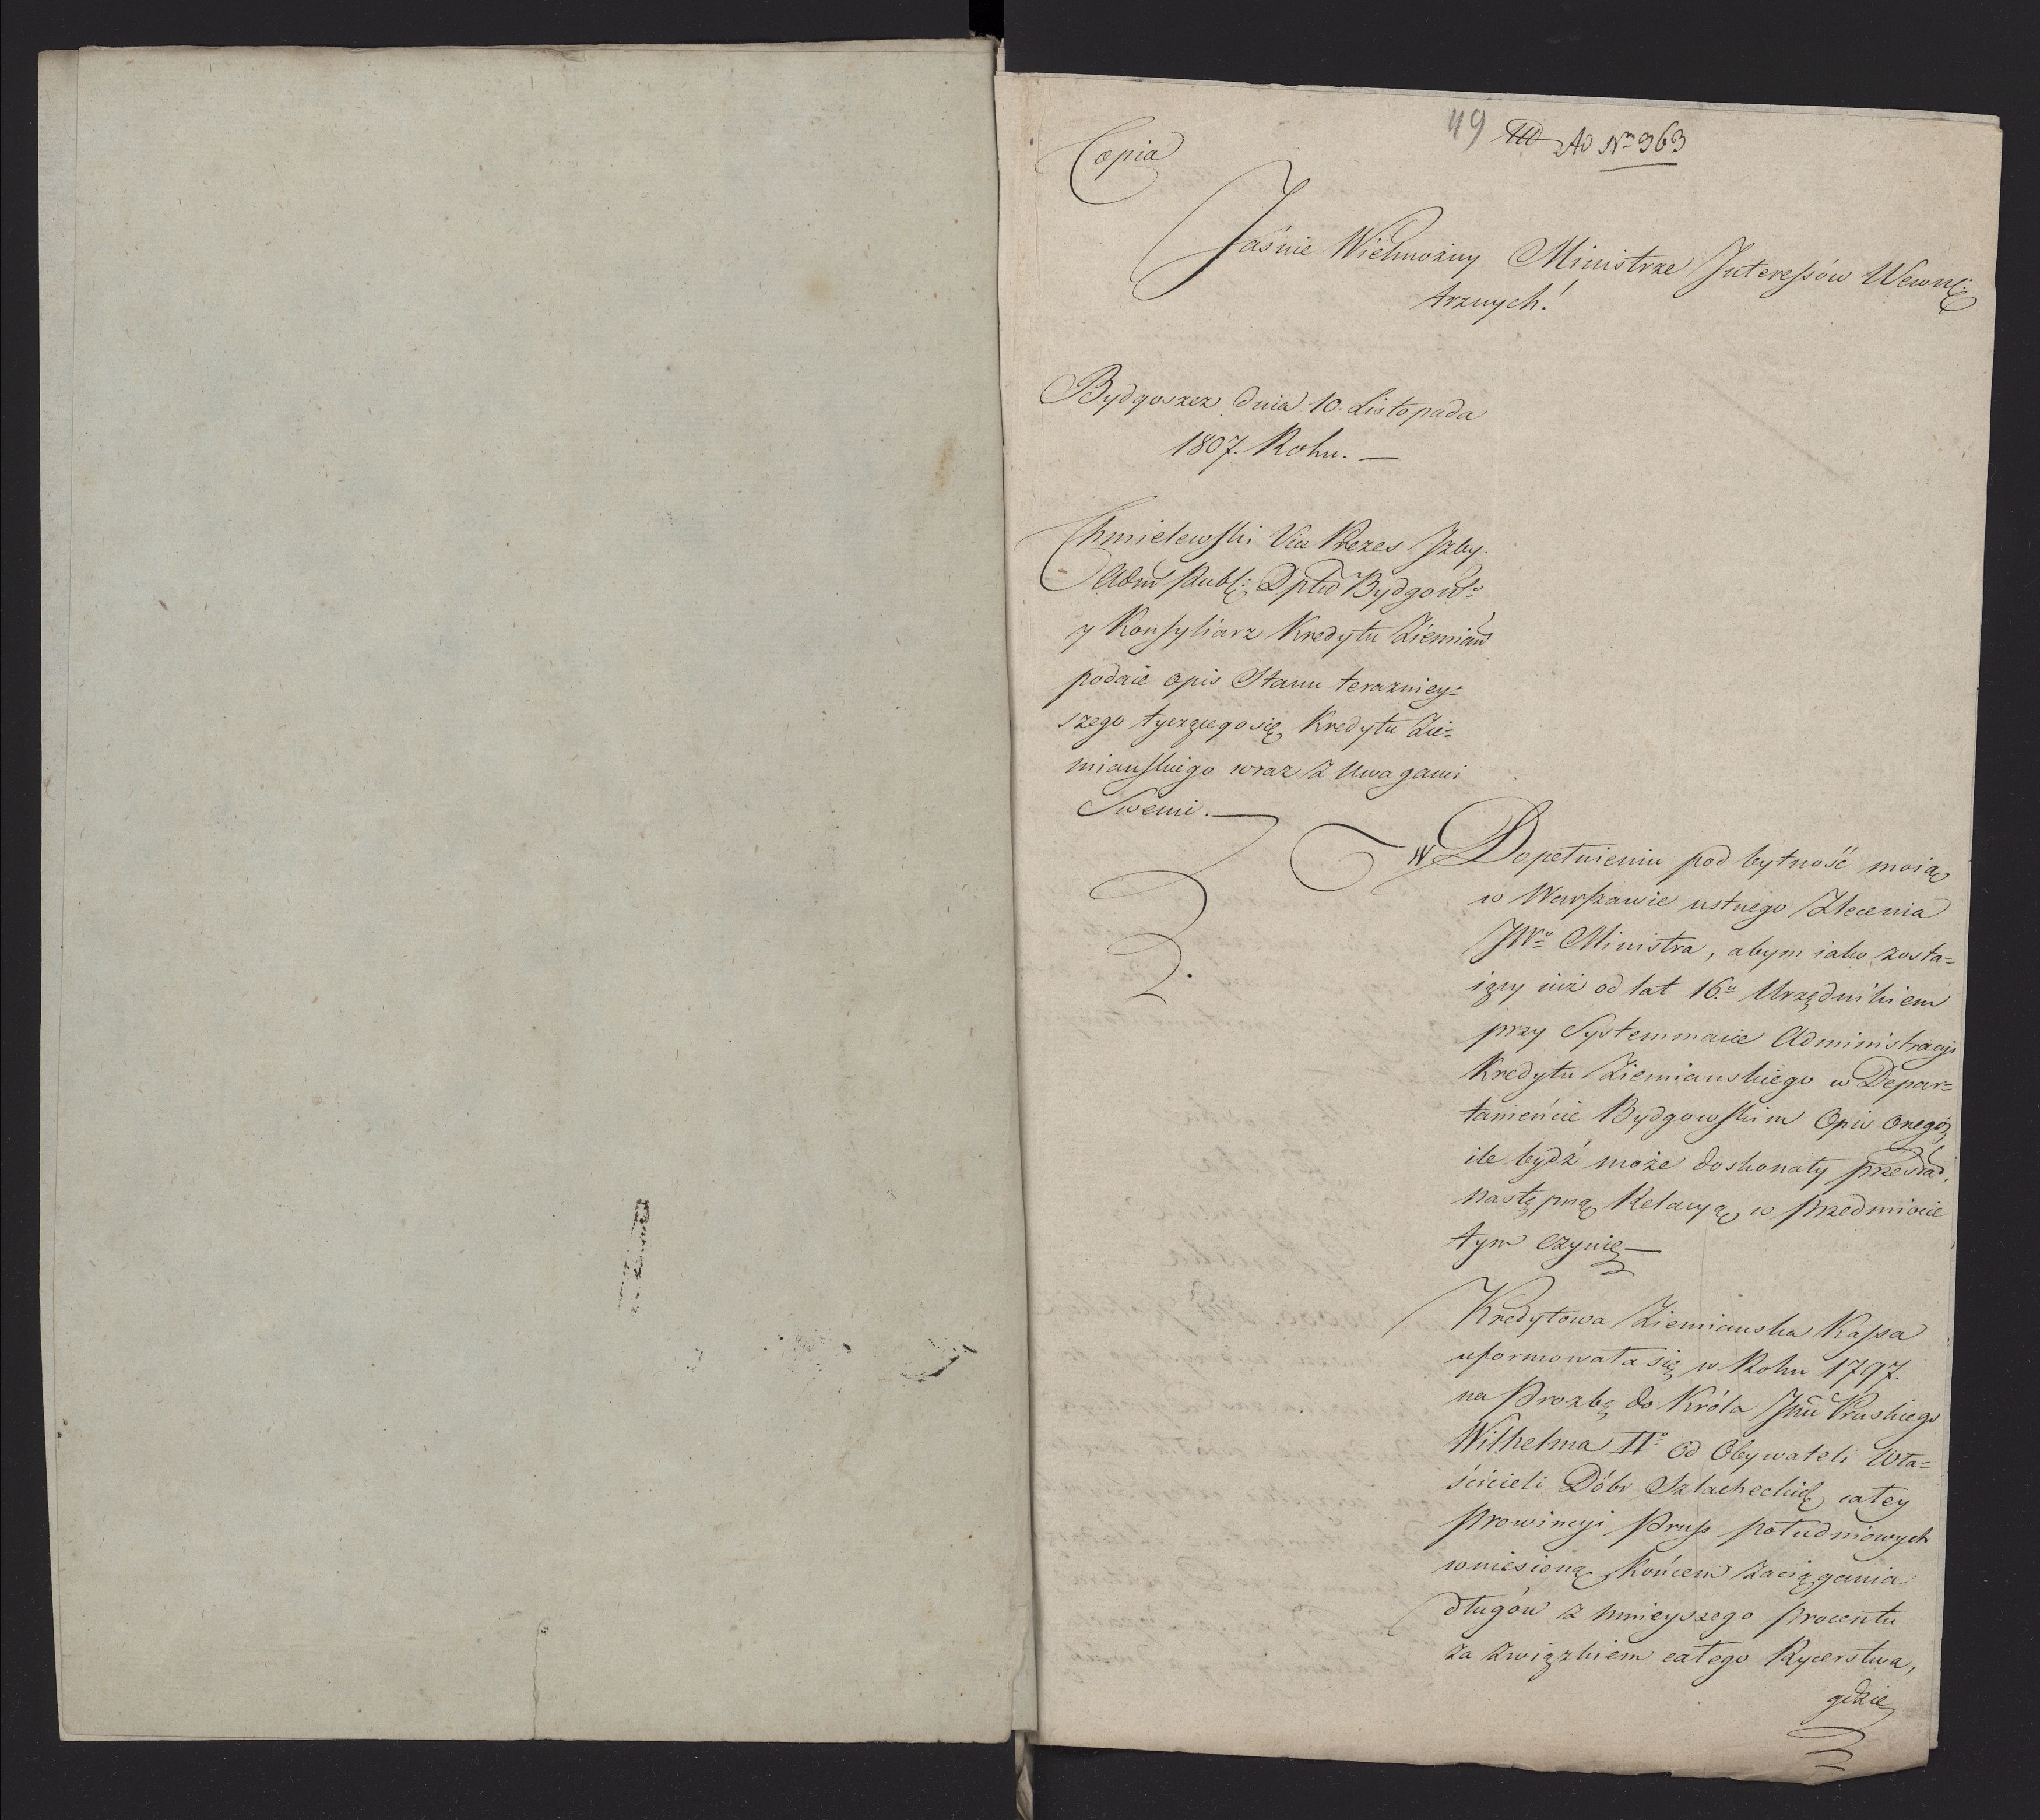 49 Ad Nrm 363
Copia
Jaśnie Wielmożny Ministrze Interessów Wewnę:
trznych!
Bydgoszcz dnia 10. Listopada
1807. Roku. —
Chmielewski Vice Prezes Izby.
Adm Publ: Dptu Bydgosk:
y Konsyliarz Kredytu Ziemians
podaie opis Stanu terazniey=
szego tyczącego się Kredytu Zie=
mianskiego wraz z Uwagami
Swemi. —
W Dopełnieniu pod bytność moią
w Warszawie ustnego Zlecenia
JWo Ministra, abym iako zosta=
iący iuż od lat 16.u Urzędnikiem
przy Systemmacie Administracyi
Kredytu Ziemianskiego w Depar=
tamencie Bydgowskim Opis onegoż
ile bydź może doskonały przesłał,
następną Relacyą w przedmiocie
tym czynię —
Kredytowa Ziemianska Kassa
uformowała się w Roku 1797.
na Prozbę do Króla Jmci Pruskiego
Wilhelma IIo od Obywateli Wła=
ścicieli Dóbr Szlacheckich całey
Prowincyi Pruss południowych
wniesioną, końcem zaciągania
długów z mnieyszego procentu
za związkiem całego Rycerstwa,
gdzie